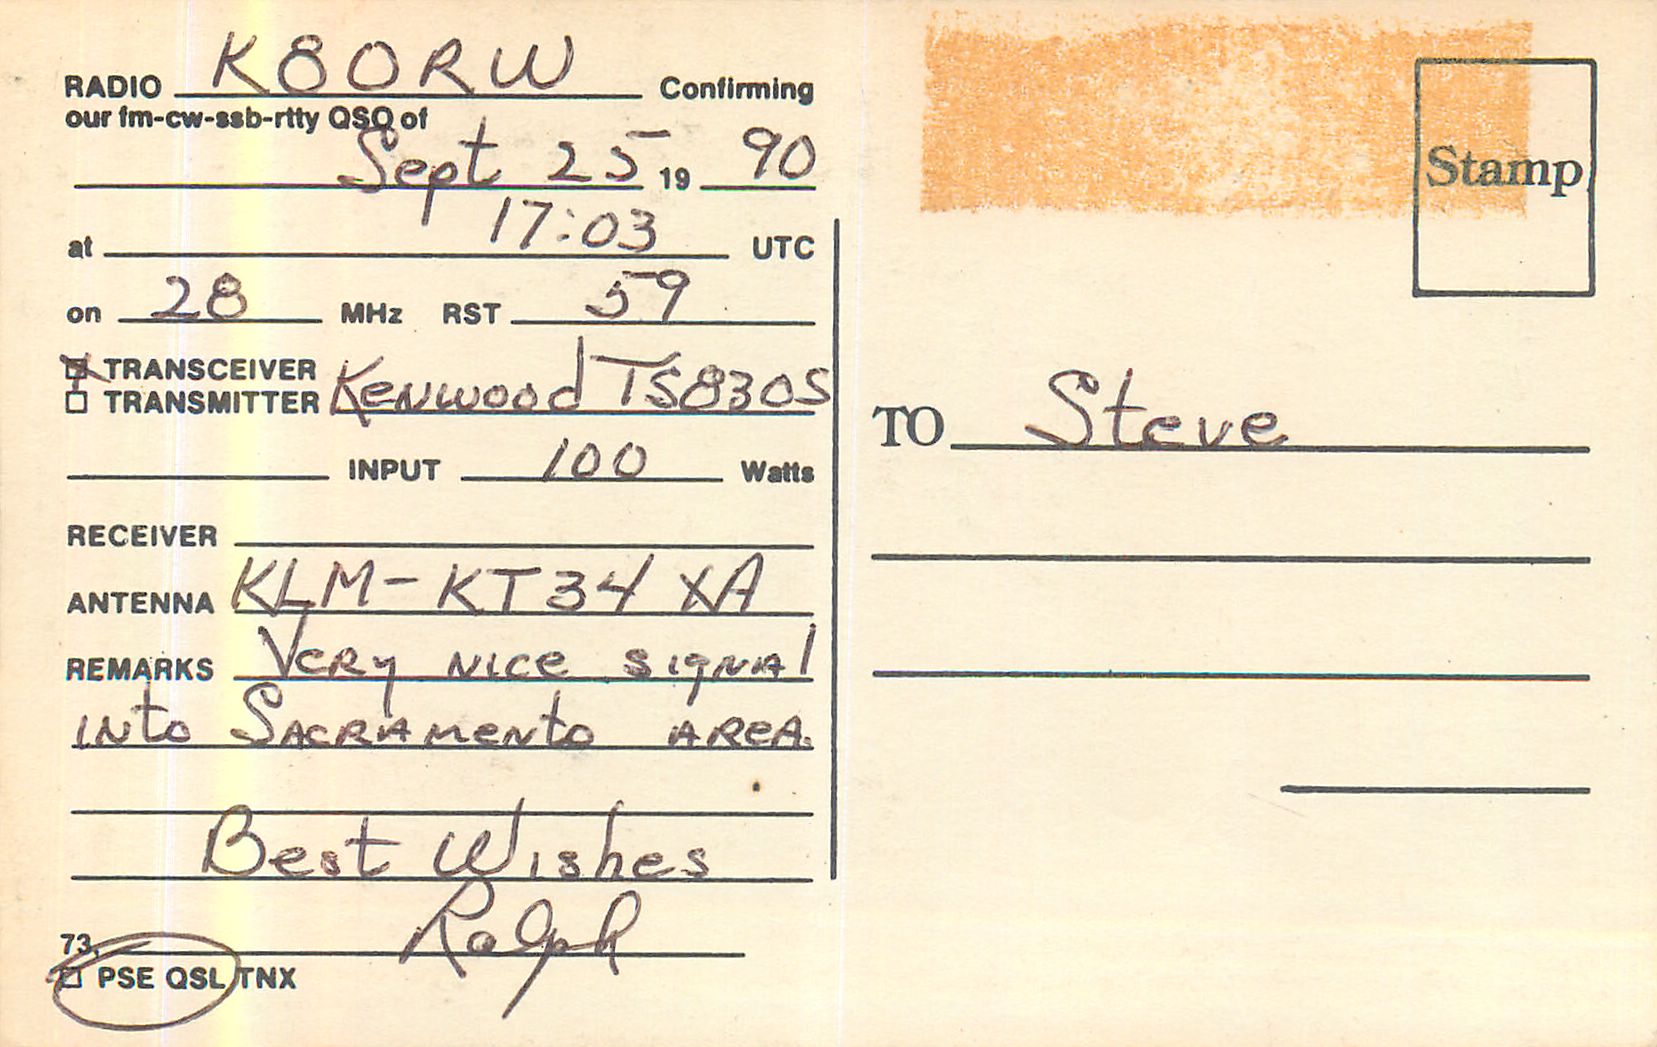 RADIO K8ORW Confirming
our fm-cw-ssb-rtty QSO of
Sept 25 19 90
at 17:03 UTC
on 28 MHz RST 59
TRANSCEIVER
TRANSMITTER Kenwood TS830S
INPUT 100 Watts
RECEIVER
ANTENNA KLM-KT34 XA
REMARKS Very nice signal
into Sacramento area.
Best Wishes
73, Ralph
PSE QSL TNX
Stamp
TO Steve